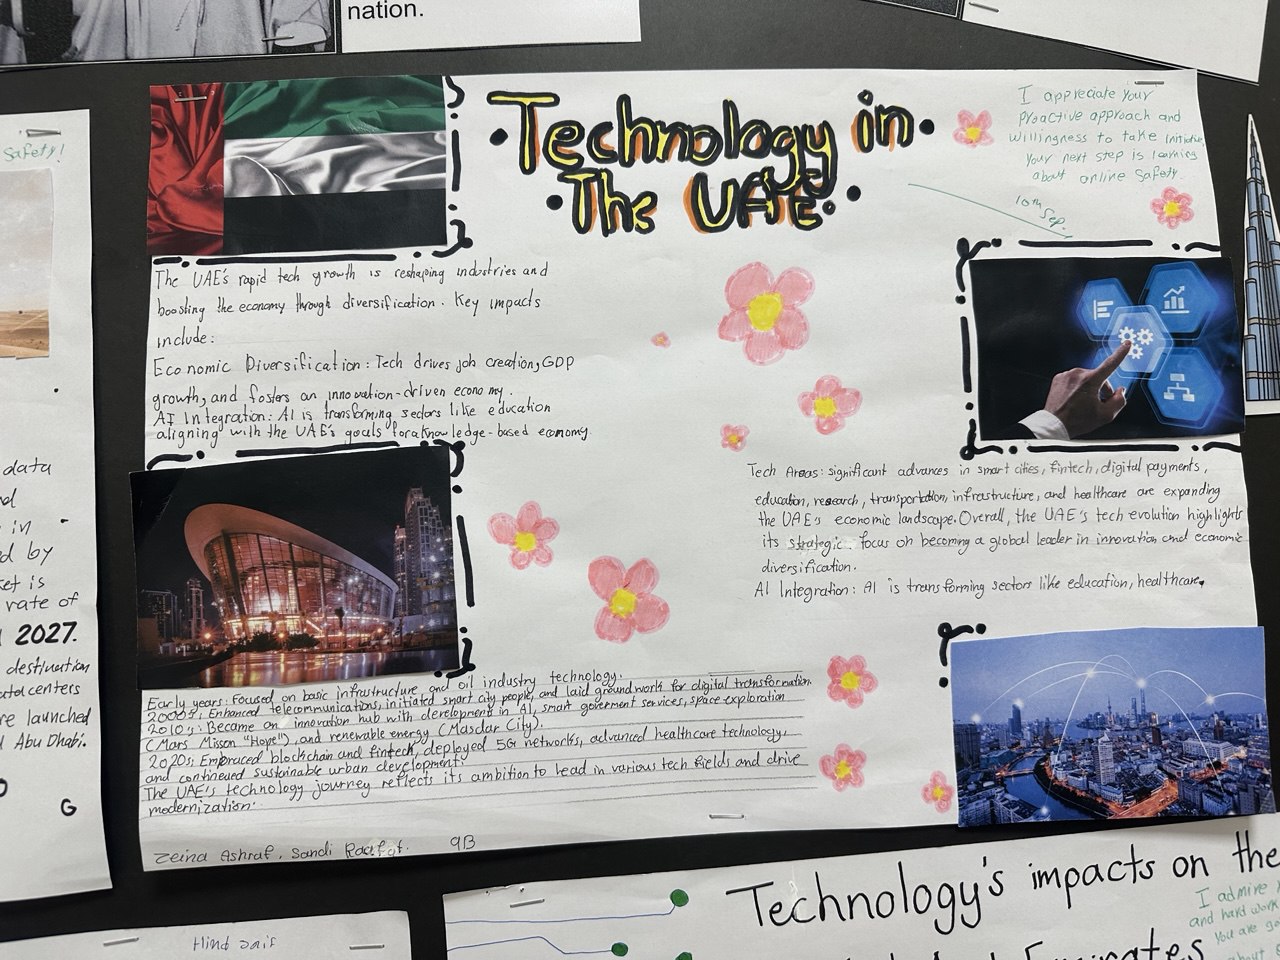 nation.
Safety!
data
in
by
is
rate of
2027.
destination
launched
Abu Dhabi.
G
Technology in
The UAE
I appreciate your
Proactive approach and
willingness to take initiative
Your next step is learning
about online Safety.
10th
Sep.
The UAE's rapid tech growth is reshaping industries and
boosting the economy through diversification. Key impacts
include:
Economic Diversification: Tech drives job creation, GDP
growth, and fosters an innovation-driven economy.
AI Integration: AI is transforming sectors like education
aligning with the UAE's goals for a knowledge-based economy.
Tech Areas: significant advances in smart cities, fintech, digital payments,
education, research, transportation, infrastructure, and healthcare are expanding
the UAE's economic landscape. Overall, the UAE's tech evolution highlights
its strategic focus on becoming a global leader in innovation and economic
diversification.
AI Integration: AI is transforming sectors like education, healthcare,
Early years: Focused on basic infrastructure and oil industry technology.
2000s: Enhanced telecommunications, initiated smart city people, and laid groundwork for digital transformation
2010's: Became an innovation hub with development in AI, smart goverment services, space exploration
(Mars Misson "Hope"), and renewable energy (Masdar City).
2020s: Embraced blockchain and fintech, deployed 5G networks, advanced healthcare technology,
and continued sustainable urban development.
The UAE's technology journey reflects its ambition to lead in various tech fields and drive
modernization.
Zeina Ashraf, Sandi Raafat. 9B
Hind Saif
Technology's impacts on the
Emirates
I admire
and hard work
You are
about